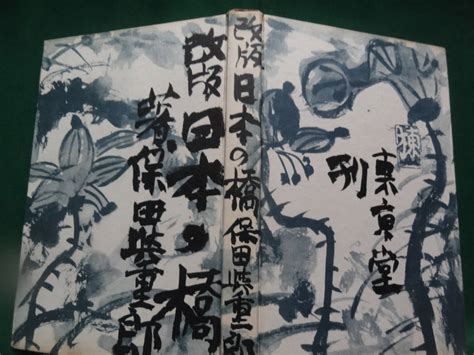 東京堂
刊
棟
改版 日本の橋 保田與重郎
改版 日本の橋
著 保田與重郎